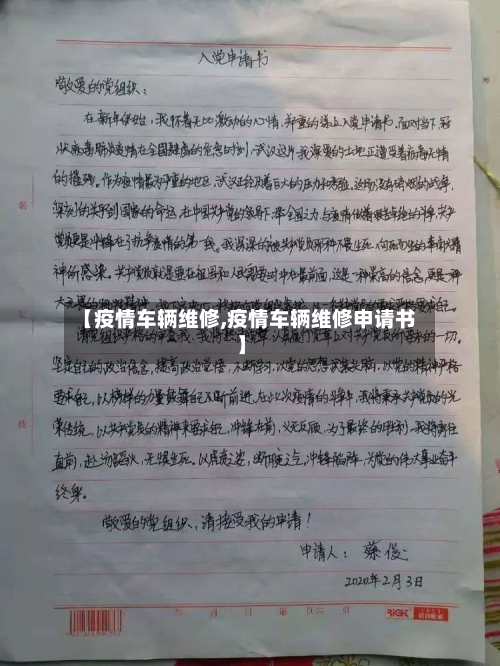 入党申请书
敬爱的党组织：
在新年伊始，我怀着无比激动的心情，郑重的递上入党申请书。面对当下冠
状病毒肺炎疫情在全国肆虐的危急时刻，武汉这片我深爱的土地正遭受着病毒无情
的摧残。作为疫情最严重的地区，武汉正经历着巨大的压力和考验，这场没有硝烟的战争，
深深的关乎到国家的命运，在中国共产党的领导下，举全国之力与疫情做着最坚决的斗争，共产
党员更是冲锋在了抗争疫情的第一线。我深深的被共产党员那种不畏生死、向死而生的革命精
神所感染。共产党员就是要在祖国和人民需要时冲在最前面，这是一种崇高的信念，更是一种
【疫情车辆维修,疫情车辆维修申请书
】
请党组织
坚定自己的政治信念，提高政治觉悟，不断学习，以党的思想武装头脑，以党的精神严格
要求自己，以榜样的力量鼓舞自己不断前进。在此次疫情的斗争中，我将秉承共产党员的光
荣传统，以共产党员的精神来要求自己，冲锋在前，义无反顾，为了最终的胜利，我将勇往
直前，赴汤蹈火，无惧生死。以
终身。
敬爱的党组织，请接受我的申请！
申请人：蔡俊
2020年2月3日
装
线
年 月 日 第 页